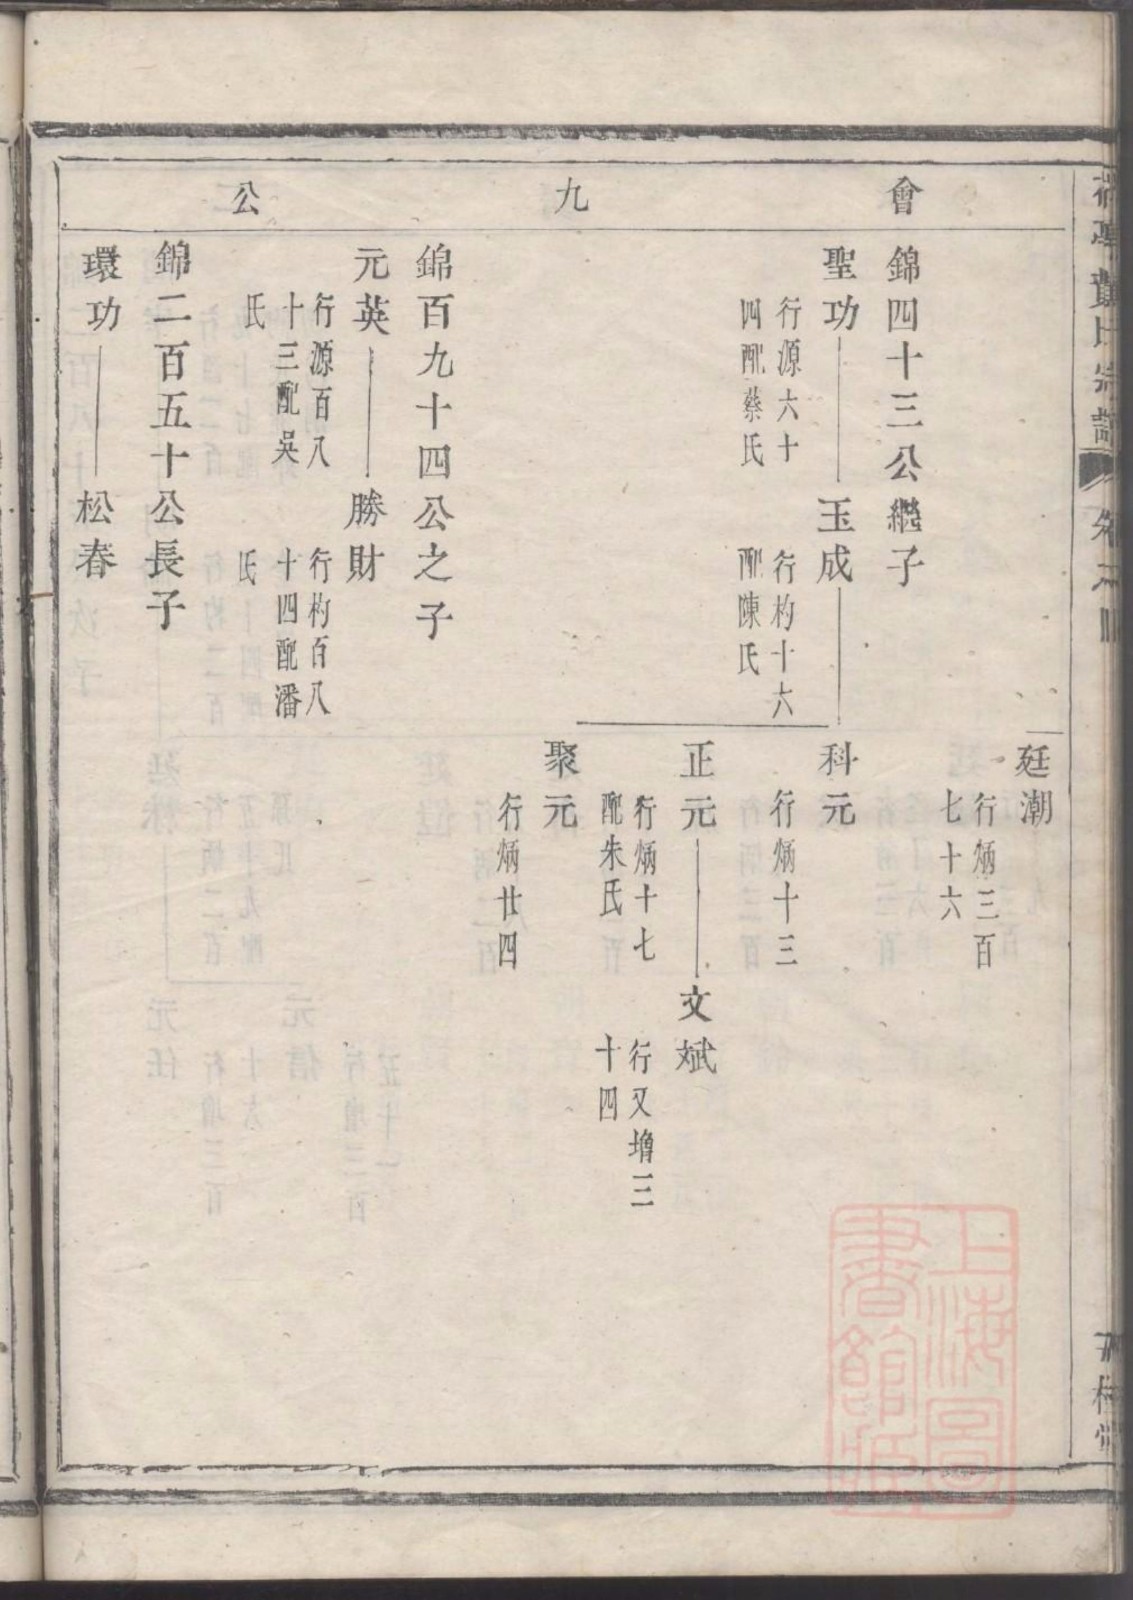 會九公
廷潮
行炳三百
七十六
錦四十三公繼子
聖功
行源六十
四配蔡氏
玉成
行杓十六
配陳氏
科元
行炳十三
正元
行炳十七
配朱氏
文斌
行又增三
十四
聚元
行炳廿四
錦百九十四公之子
元英
行源百八
十三配吳
氏
勝財
行杓百八
十四配潘
氏
錦二百五十公長子
環功
松春
上海圖
書館藏